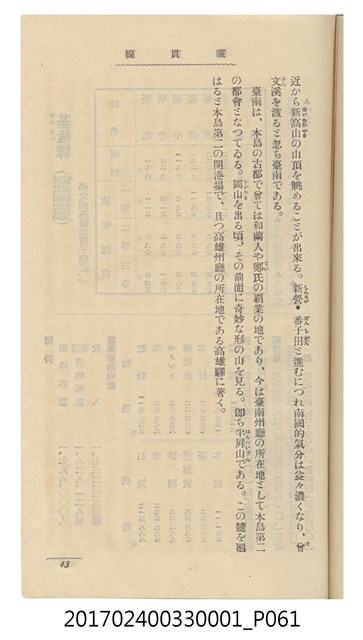 縱貫線
近から新高山の山頂を眺めることが出來る。新營・番子田と進むにつれ南國的氣分は益々濃くなり、曾
文溪を渡ると忽ち臺南である。
臺南は、本島の古都で曾ては和蘭人や鄭氏の覇業の地であり、今は臺南州廳の所在地として本島第二
の都會となつてゐる。岡山を出る頃、その前面に奇妙な形の山を見る。卽ち半屏山である。この麓を廻
はると本島第二の開港場で、且つ高雄州廳の所在地である高雄驛に著く。
43
201702400330001_P061